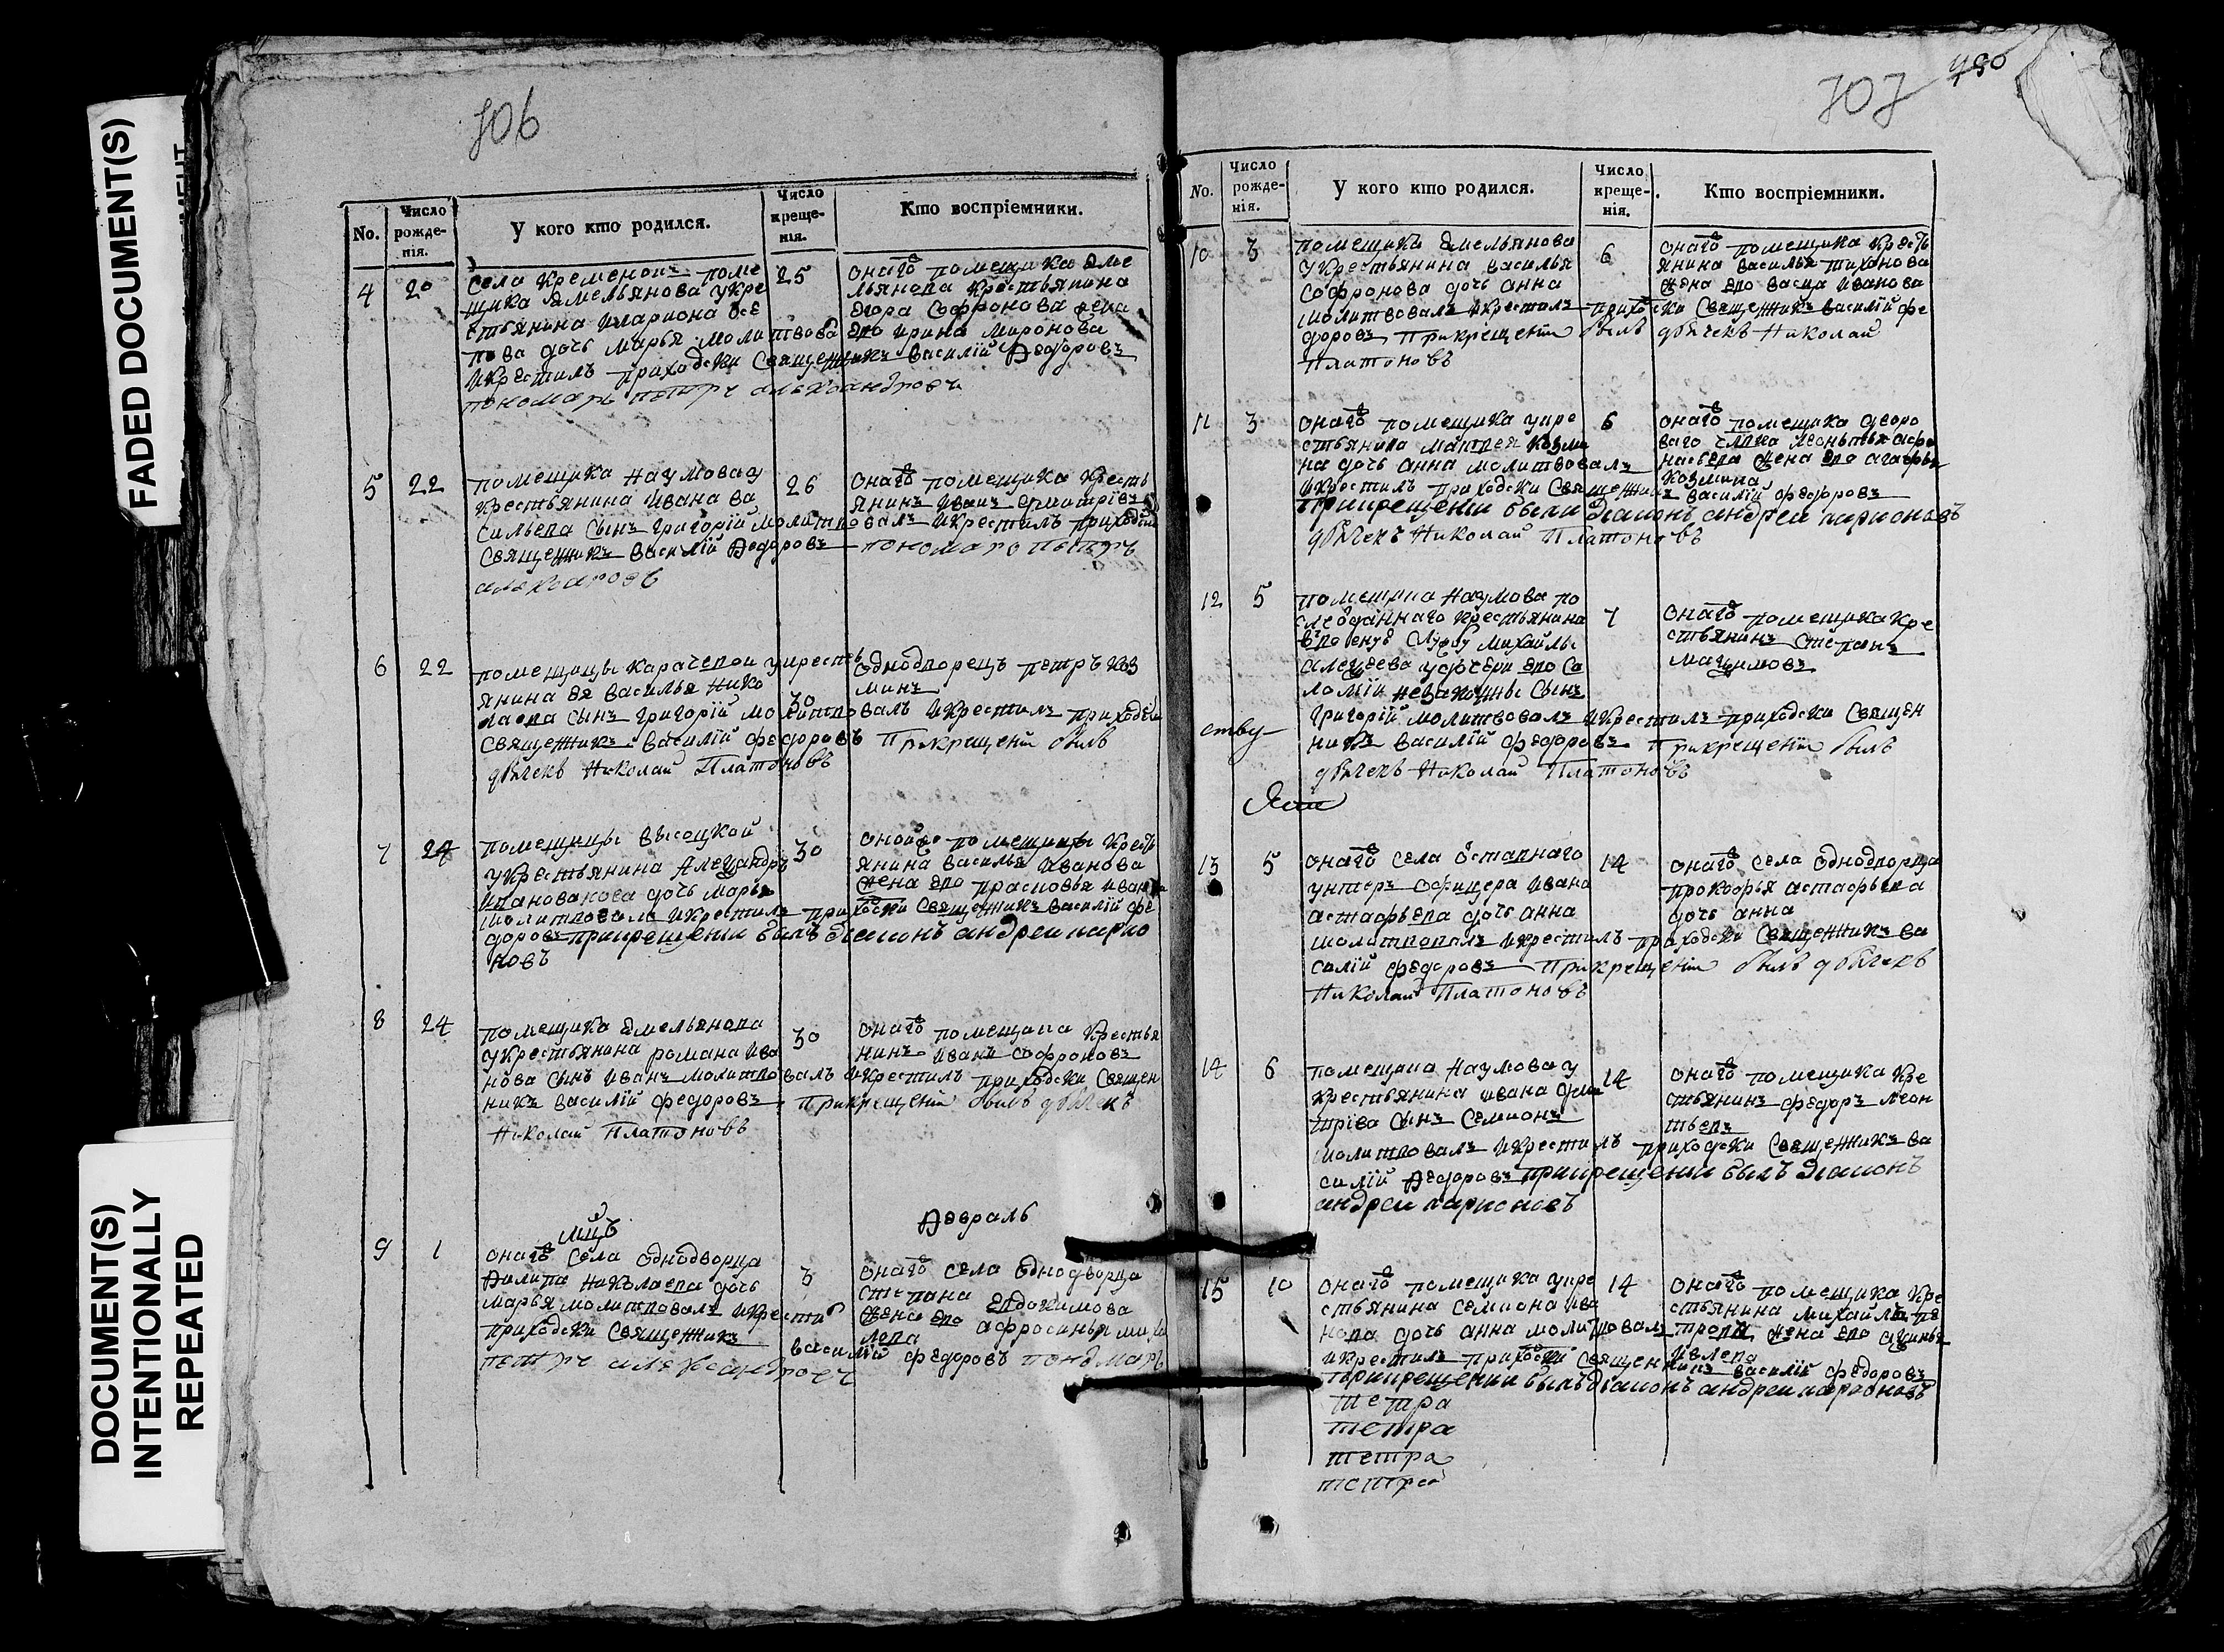 FADED DOCUMENT(S)
DOCUMENT(S)
INTENTIONALLY
REPEATED
706
No.
Число рожде-нія.
У кого кто родился.
Число креще-нія.
Кто воспріемники.
4
20
села
поме
щика Амельянова укре
стьянина Илариона
дочь Марья молитвова
Икрестилъ приходски Священникъ Василій Федоровъ
пономарь петръ
25
онагѡ помещика Аме
льянова Крестьянина
Егора Софронова жена
его Ирина Миронова
5
22
помещика Наумова у
крестьянина Ивана Ва
сильева Сынъ Григорій молитвовалъ Икрестилъ приходски
Священникъ Василій Федоровъ пономарь петръ
26
онагѡ помещика Кресть
янинъ Иванъ Дмитріевъ
6
22
помещицы Карачевои укресть
янина Василья Нико
лаева сынъ Григорій молитвовалъ Икрестилъ приходски
священникъ Василій федоровъ Прикрещеніи былъ
дьячекъ Николай Платоновъ
30
Однодворецъ петръ Коз
минъ
7
24
помещицы Высоцкой
укрестьянина Алеѯандра
дочь Марья
молитвовалъ Икрестилъ приходски Священникъ Василій фе
доровъ прикрещеніи былъ диаконъ андреи ларио
новъ
30
оной помещицы Кресть
янина Василья Иванова
жена его прасковья Иванова
8
24
помещика Амельянова
укрестьянина романа Ива
нова Сынъ Иванъ молитвовалъ Икрестилъ приходски Священ
никъ Василій федоровъ Прикрещеніи былъ дьячекъ
Николай Платоновъ
30
онагѡ помещика Крестья
нинъ Иванъ Софроновъ
мцъ
Февраль
9
1
онагѡ села однодворца
Филипа Николаева дочь
Марья молитвовалъ Икрести
приходски Священникъ Василій федоровъ пономарь
петръ александровъ
3
онагѡ села Однодворца
степана Евдокимова
жена его афросинья
707
No.
Число рожде-нія.
У кого кто родился.
Число креще-нія.
Кто воспріемники.
10
3
помещика Амельянова
укрестьянина Василья
Софронова дочь анна
молитвовалъ Икрестилъ приходски Священникъ Василій фе
доровъ Прикрещеніи былъ дьячекъ Николай
Платоновъ
6
онагѡ помещика Кресть
янина Василья тихонова
жена его Васса Иванова
11
3
онагѡ помещика укре
стьянина Матвея Козми
на дочь анна молитвовалъ
Икрестилъ приходски Священникъ Василій федоровъ
Прикрещеніи были диаконъ андреи ларионовъ
дьячекъ Николай Платоновъ
6
онагѡ помещика дворо
ваго Леонтья афа
насьева жена его агафья
Козмина
12
5
помещика Наумова по
крестьянина
службу Михайлы
алеѯеева удочери его Са
ломіи незаконны Сынъ
Григорій молитвовалъ Икрестилъ приходски Священ
никъ Василій федоровъ Прикрещеніи былъ
дьячекъ Николай Платоновъ
7
онагѡ помещика Кре
стьянинъ Степанъ
Маѯимовъ
13
5
онагѡ села Ѿставнаго
унтеръ Офицера Ивана
астафьева дочь анна
молитвовалъ Икрестилъ приходски Священникъ Ва
силій федоровъ Прикрещеніи былъ дьячекъ
Николай Платоновъ
14
онагѡ села Однодворца
прокофья астафьева
дочь анна
14
6
помещика Наумова у
крестьянина Ивана Дми
тріва Сынъ Семионъ
молитвовалъ Икрестилъ приходски Священникъ Ва
силій Федоровъ прикрещеніи былъ диаконъ
андреи ларионовъ
14
онагѡ помещика Кре
стьянинъ федоръ Леон
тьевъ
15
10
онагѡ помещика укре
стьянина Семиона Ива
нова дочь анна молитвовалъ
Икрестилъ приходски Священникъ Василій федоровъ
Прикрещеніи былъ диаконъ андреи ларионовъ
14
онагѡ помещика Кре
стьянина Михайлы Пе
трова жена его аѯинья
петра
петра
петра